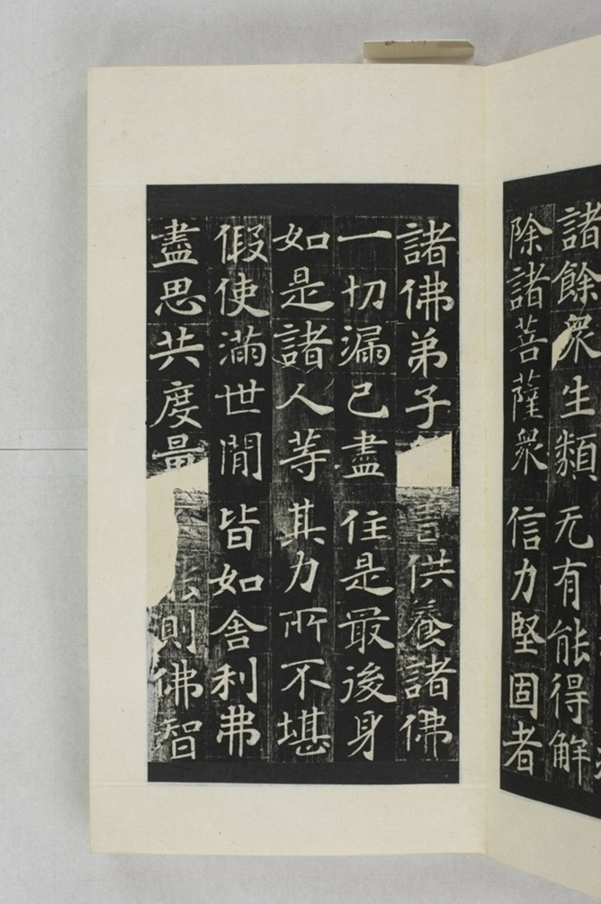 諸餘衆生類无有能得解
除諸菩薩衆信力堅固者
諸佛弟子供養諸佛
一切漏已盡住是最後身
如是諸人等其力所不堪
假使滿世閒皆如舍利弗
盡思共度量佛智